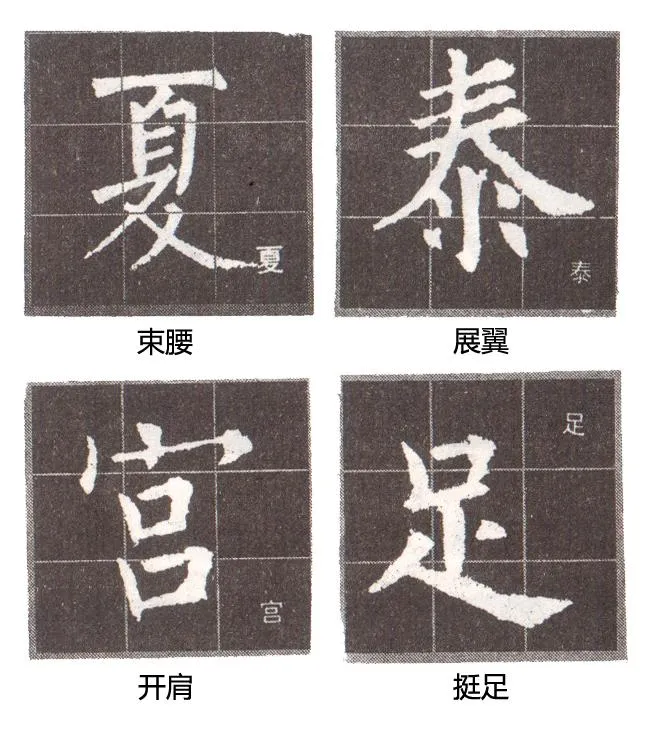 夏 泰
夏 泰
束腰 展翼
宫 足
宫 足
开肩 挺足